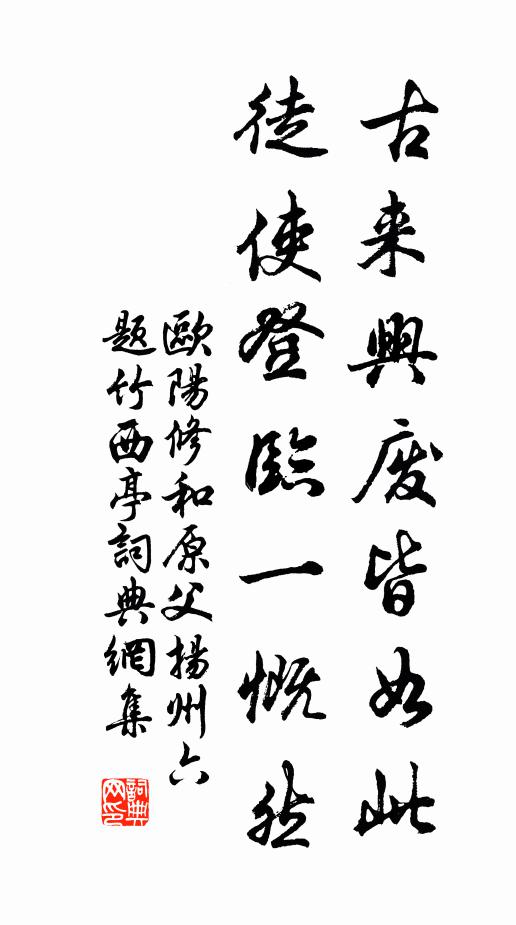 古来興廢皆如此
徒使登臨一慨然
歐陽修和原父揚州六
題竹西亭詞典網集
詞典
网印